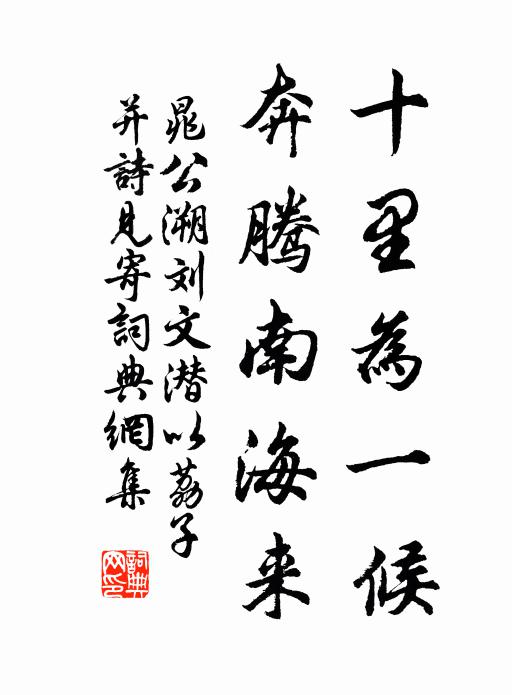 十里為一候
奔騰南海来
晁公溯刘文潜以荔子
并詩見寄詞典網集
詞典网印